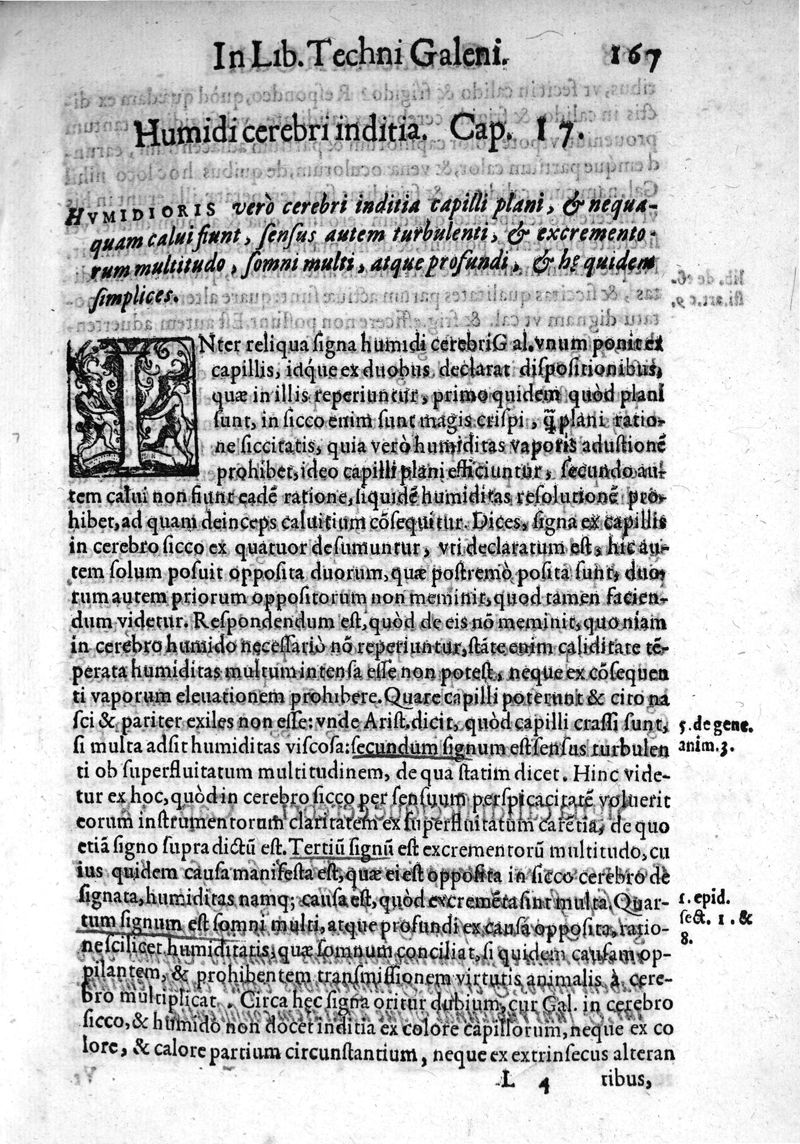 In Lib. Techni Galeni. 167
Humidi cerebri inditia. Cap. 17.
HVMIDIORIS verò cerebri inditia capilli plani, & nequa-
quam calui fiunt, sensus autem turbulenti, & excremento-
rum multitudo, somni multi, atque profundi, & hę quidem
simplices.
INter reliqua signa humidi cerebri Gal. vnum ponit ex
capillis, idq́ue ex duobus declarat dispositionibus,
quæ in illis reperiuntur, primo quidem quòd plani
sunt, in sicco enim sunt magis crispi, q̃ plani ratio-
ne siccitatis, quia verò humiditas vaporis adustionẽ
prohibet, ideo capilli plani efficiuntur, secundo au-
tem calui non fiunt eadẽ ratione, siquidẽ humiditas resolutionẽ pro-
hibet, ad quam deinceps caluitium cõsequitur. Dices, signa ex capillis
in cerebro sicco ex quatuor desumuntur, vti declaratum est, hic au-
tem solum posuit opposita duorum, quæ postremò posita sunt, duo-
rum autem priorum oppositorum non meminit, quod tamen facien-
dum videtur. Respondendum est, quòd de eis nõ meminit, quoniam
in cerebro humido necessariò nõ reperiuntur, stãte enim caliditate tẽ-
perata humiditas multum intensa esse non potest, neque ex cõsequen
ti vaporum eleuationem prohibere. Quare capilli poterunt & cito na
sci & pariter exiles non esse: vnde Arist. dicit, quòd capilli crassi sunt,
si multa adsit humiditas viscosa: secundum signum est sensus turbulen
ti ob superfluitatum multitudinem, de qua statim dicet. Hinc vide-
tur ex hoc, quòd in cerebro sicco per sensuum perspicacitatẽ voluerit
eorum instrumentorum claritatem ex superfluitatum carẽtia, de quo
etiã signo supra dictũ est. Tertiũ signũ est excrementorũ multitudo, cu
ius quidem causa manifesta est, quæ ei est opposita in sicco cerebro de
signata, humiditas namq; causa est, quòd excremẽta sint multa. Quar-
tum signum est somni multi, atque profundi ex causa opposita, ratio-
ne scilicet humiditatis, quæ somnum conciliat, si quidem causam op-
pilantem, & prohibentem transmissionem virtutis animalis à cere-
bro multiplicat. Circa hęc signa oritur dubium, cur Gal. in cerebro
sicco, & humido non docet inditia ex colore capillorum, neque ex co
lore, & calore partium circunstantium, neque ex extrinsecus alteran
L 4 tribus,
5. de gene.
anim. 3.
1. epid.
sect. 1. &
8.